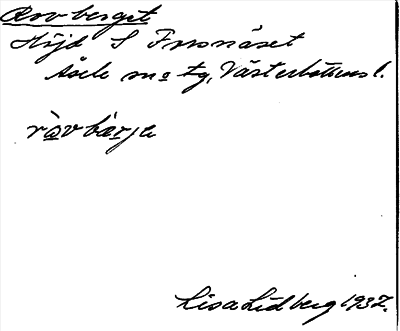 Rovberget
Höjd S Tresnäset
Åsele sn o tg, Västerbottens l.
ròvbàrje
Lisa Lidberg 1937.